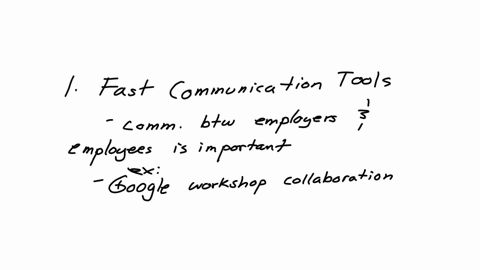 1. Fast Communication Tools
- comm. btw employers &
employees is important
ex:
- Google workshop collaboration